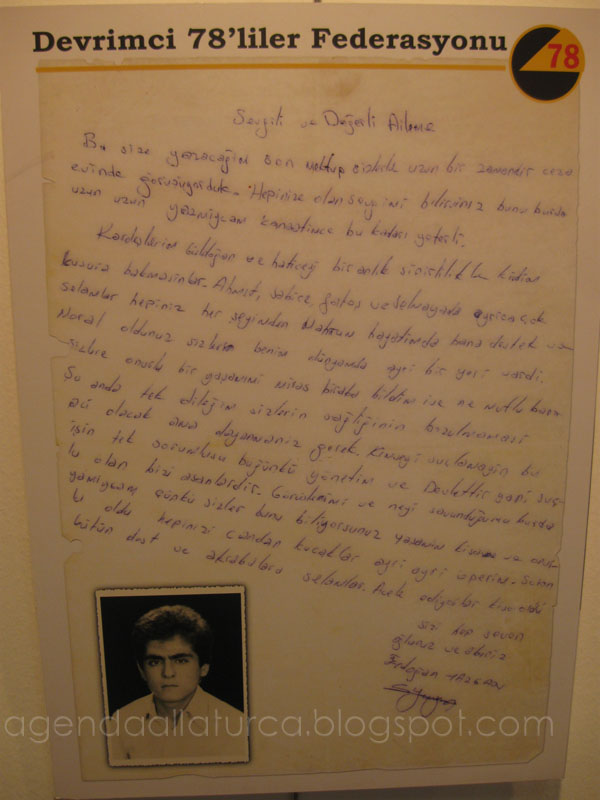 Devrimci 78'liler Federasyonu
78
Sevgili ve Değerli Aileme
Bu size yazacağım son mektup sizlerle uzun bir zamandır ceza
evinde görüşüyorduk. Hepinize olan sevgimi bilirsiniz bunu burda
uzun uzun yazmıycam kanaatimce bu kadarı yeterli.
Kardeşlerim ve haticeyi bir anlık
kusura bakmasınlar. Ahmet, sabire, ve Selmayada ayrıca çok
selamlar hepiniz her şeyinden Mahrum hayatımda bana destek
oldunuz sizlerin benim dünyamda ayrı bir yeri vardı.
sizlere onurlu bir yaşamımı miras bıraka bildim ise ne mutlu bana
Şu anda tek dileğim sizlerin sağlığının bozulmaması
acı olacak ama dayanmanız gerek. Kimseyi suçlamayın bu
işin tek sorumlusu bugünkü yönetim ve Devlettir yani suç-
lu olan bizi asanlardır. Görüşlerimi ve neyi savunduğumu burda
yazmıycam çünkü sizler bunu biliyorsunuz yaşamım kısa ve onur-
lu oldu hepinizi candan kucaklar ayrı ayrı öperim.
bütün dost ve akrabalara selamlar. Acele ediyorlar kısa oldu
sizi hep seven
oğlunuz ve abiniz
Erdoğan YAZGAN
agendaallaturca.blogspot.com